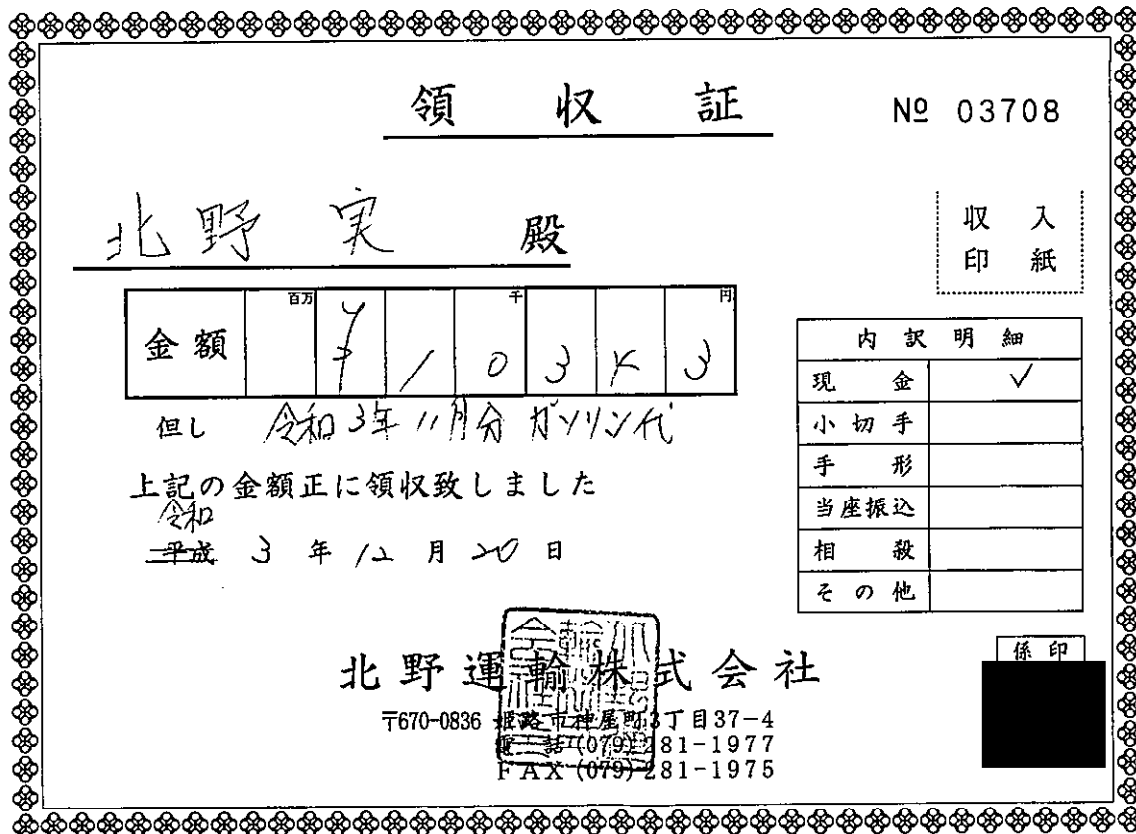 領収証
№ 03708
北野 実 殿
収入
印紙
金額 百万 千 円
¥10343
但し 令和3年11月分 ガソリン代
上記の金額正に領収致しました
令和
平成 3 年 12 月 20 日
内訳明細
現金 ✓
小切手
手形
当座振込
相殺
その他
係印
北野運輸株式会社
〒670-0836 姫路市神屋町3丁目37-4
電話(079)281-1977
FAX(079)281-1975